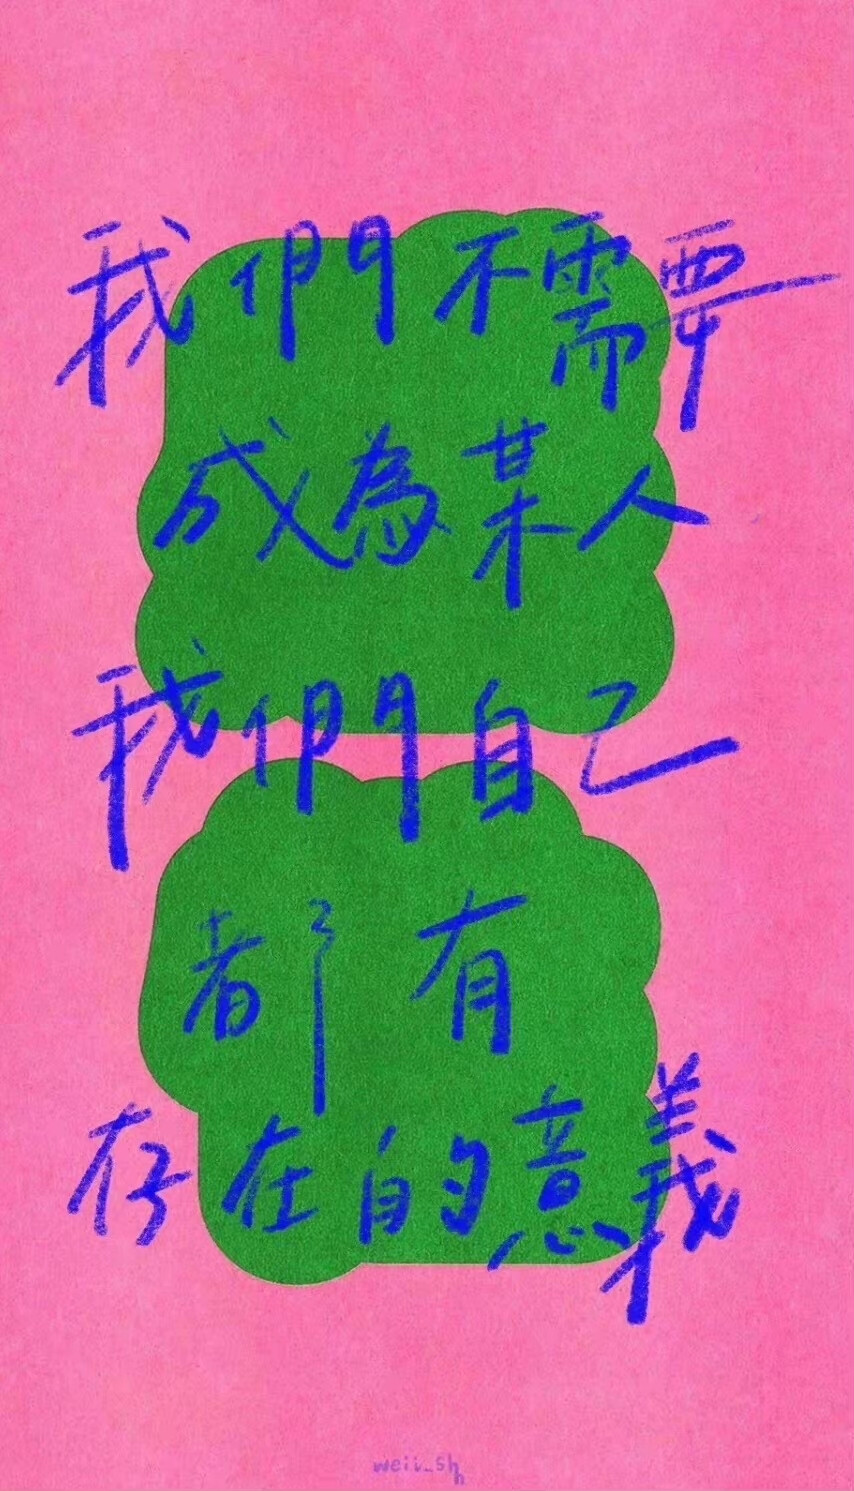 我們不需要
成為某人
我們自己
都有
存在的意義
weii_shh